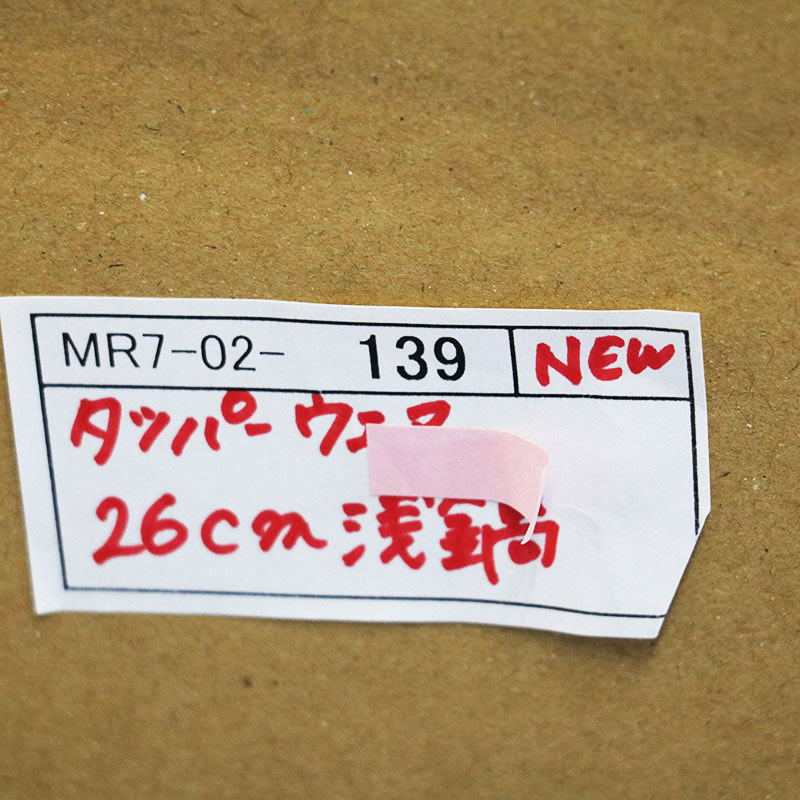 MR7-02- 139 NEW
タッパーウェア
26cm 浅鍋